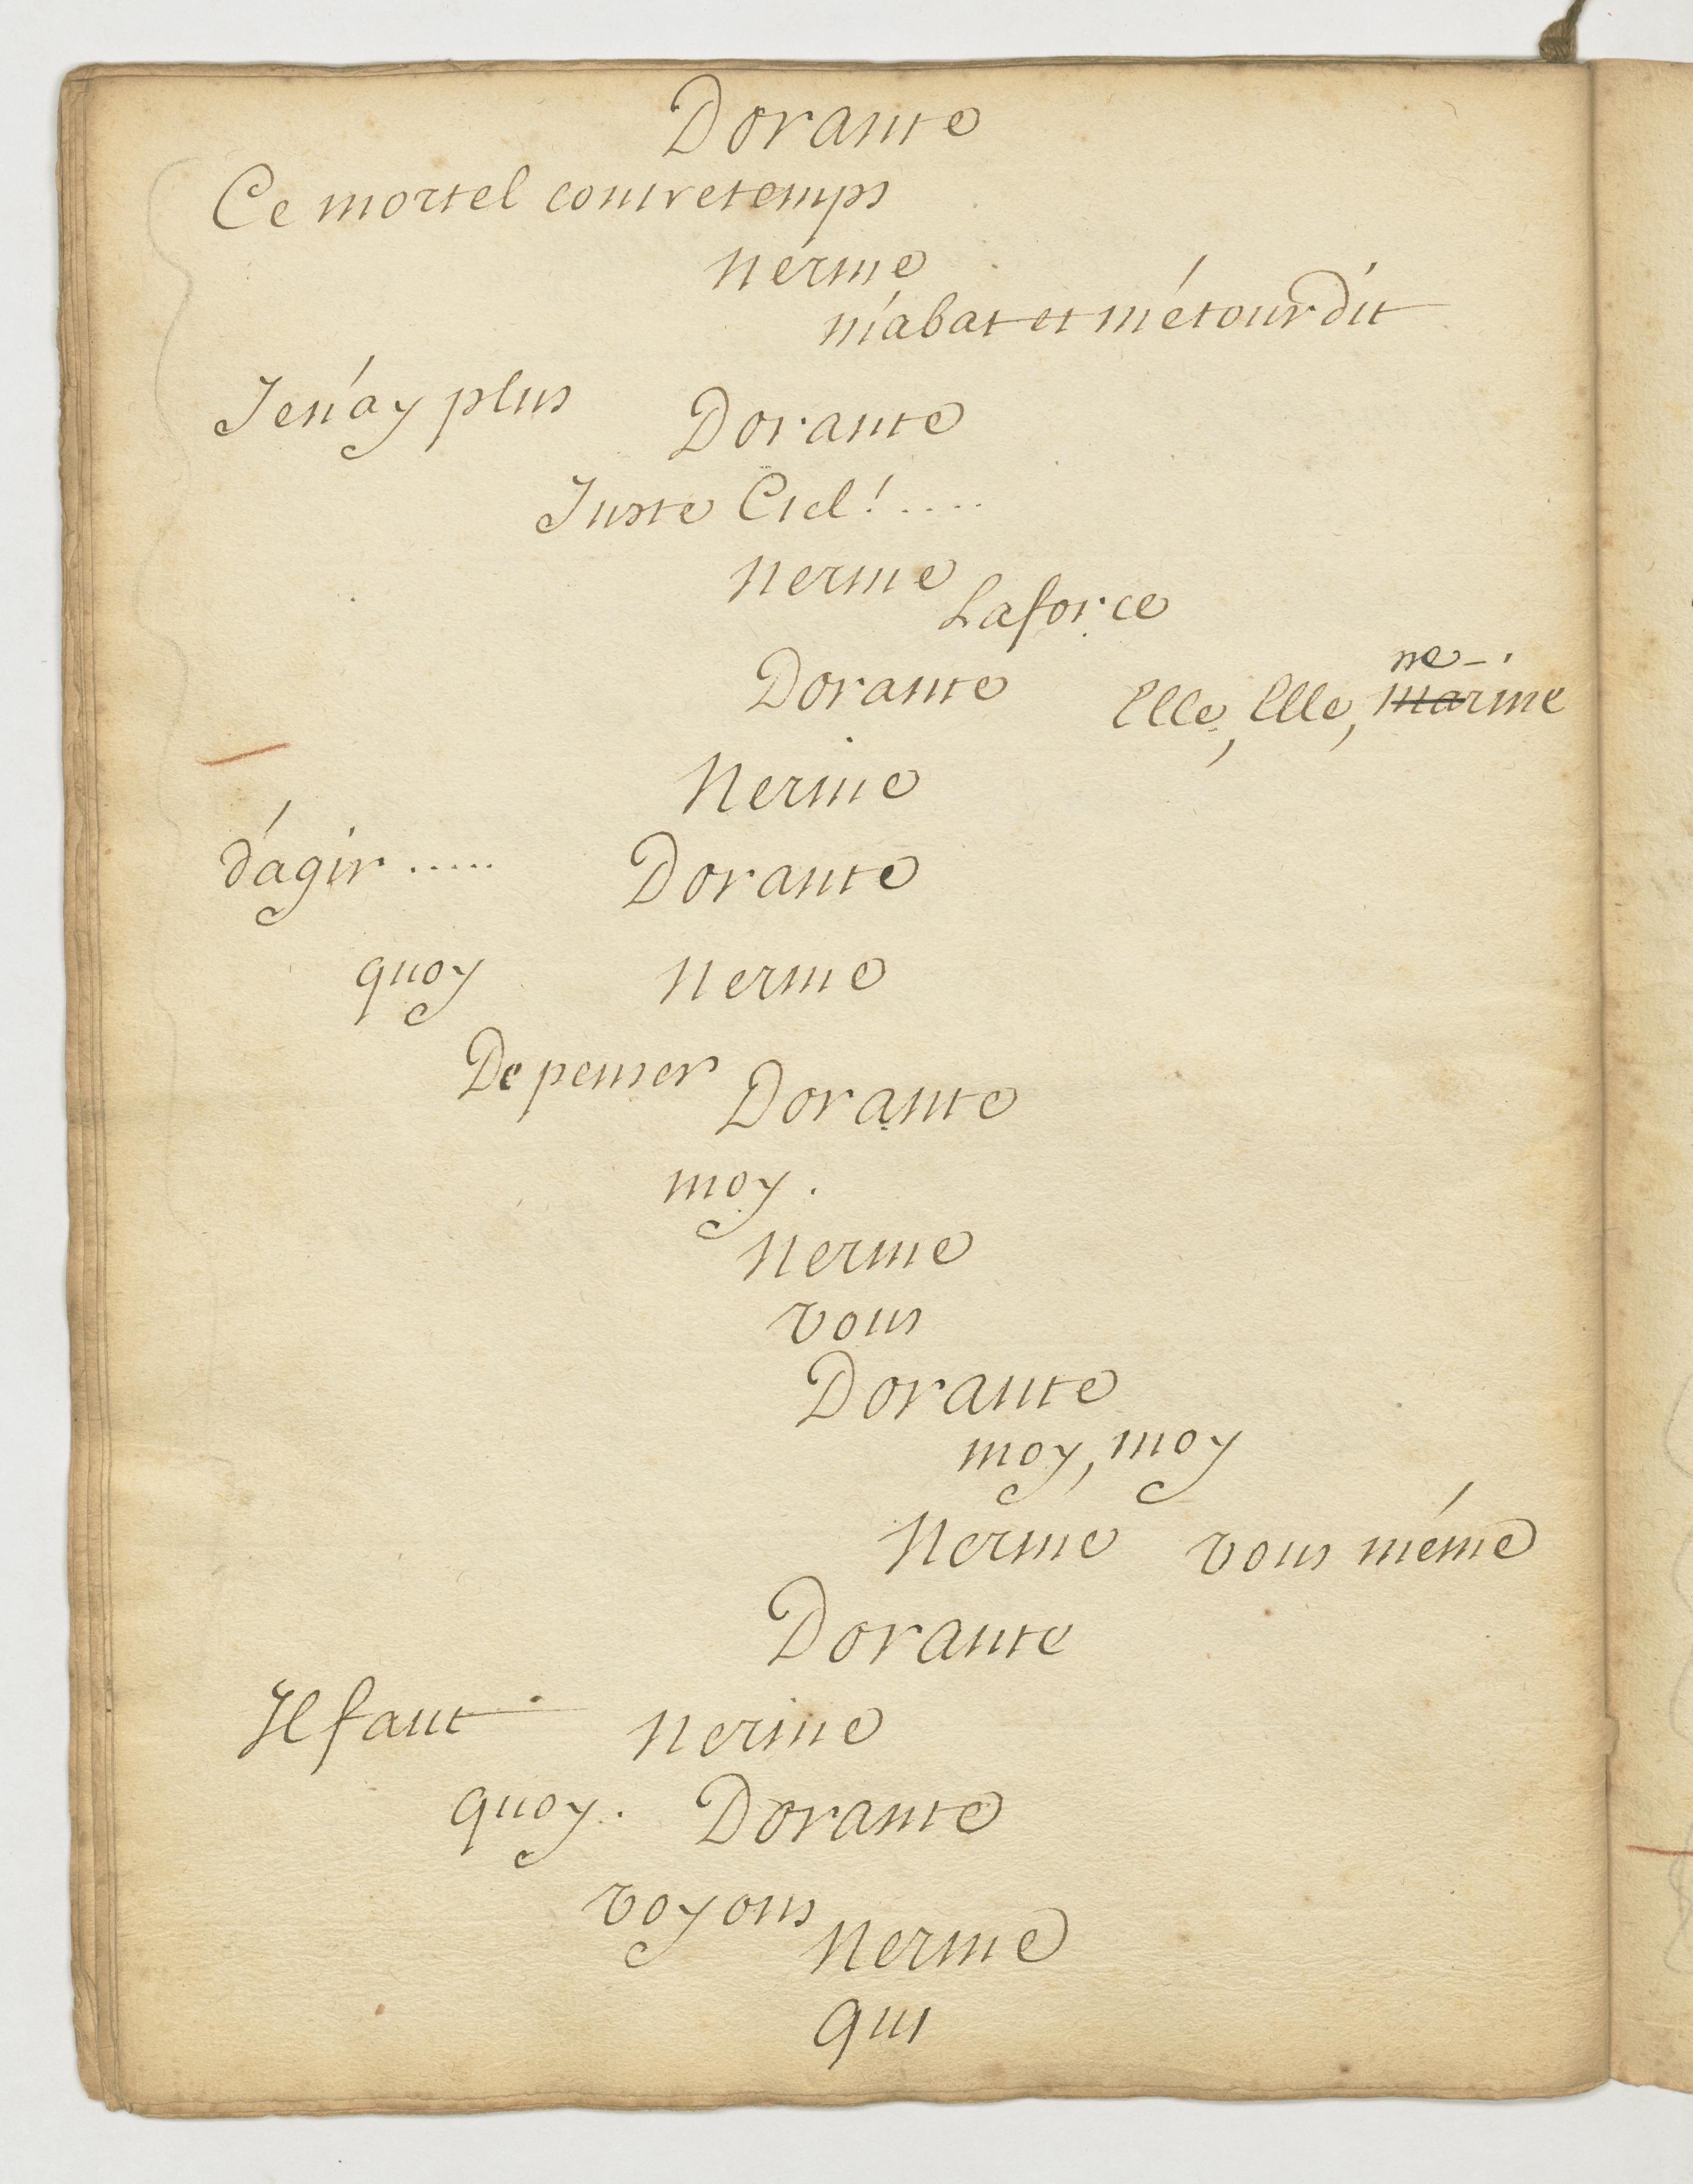 Dorante
Ce mortel contretemps
nerine
m'abat et m'étourdit
Je n'ay plus
Dorante
Juste Ciel! .....
nerine
La force
Dorante
ne - .
Elle, Elle, marine
Nerine
d'agir .....
Dorante
quoy
nerine
De penser
Dorante
moy.
nerine
vous
Dorante
moy, moy
Nerine vous méme
Dorante
Il faut
nerine
quoy. Dorante
voyons
nerine
qui